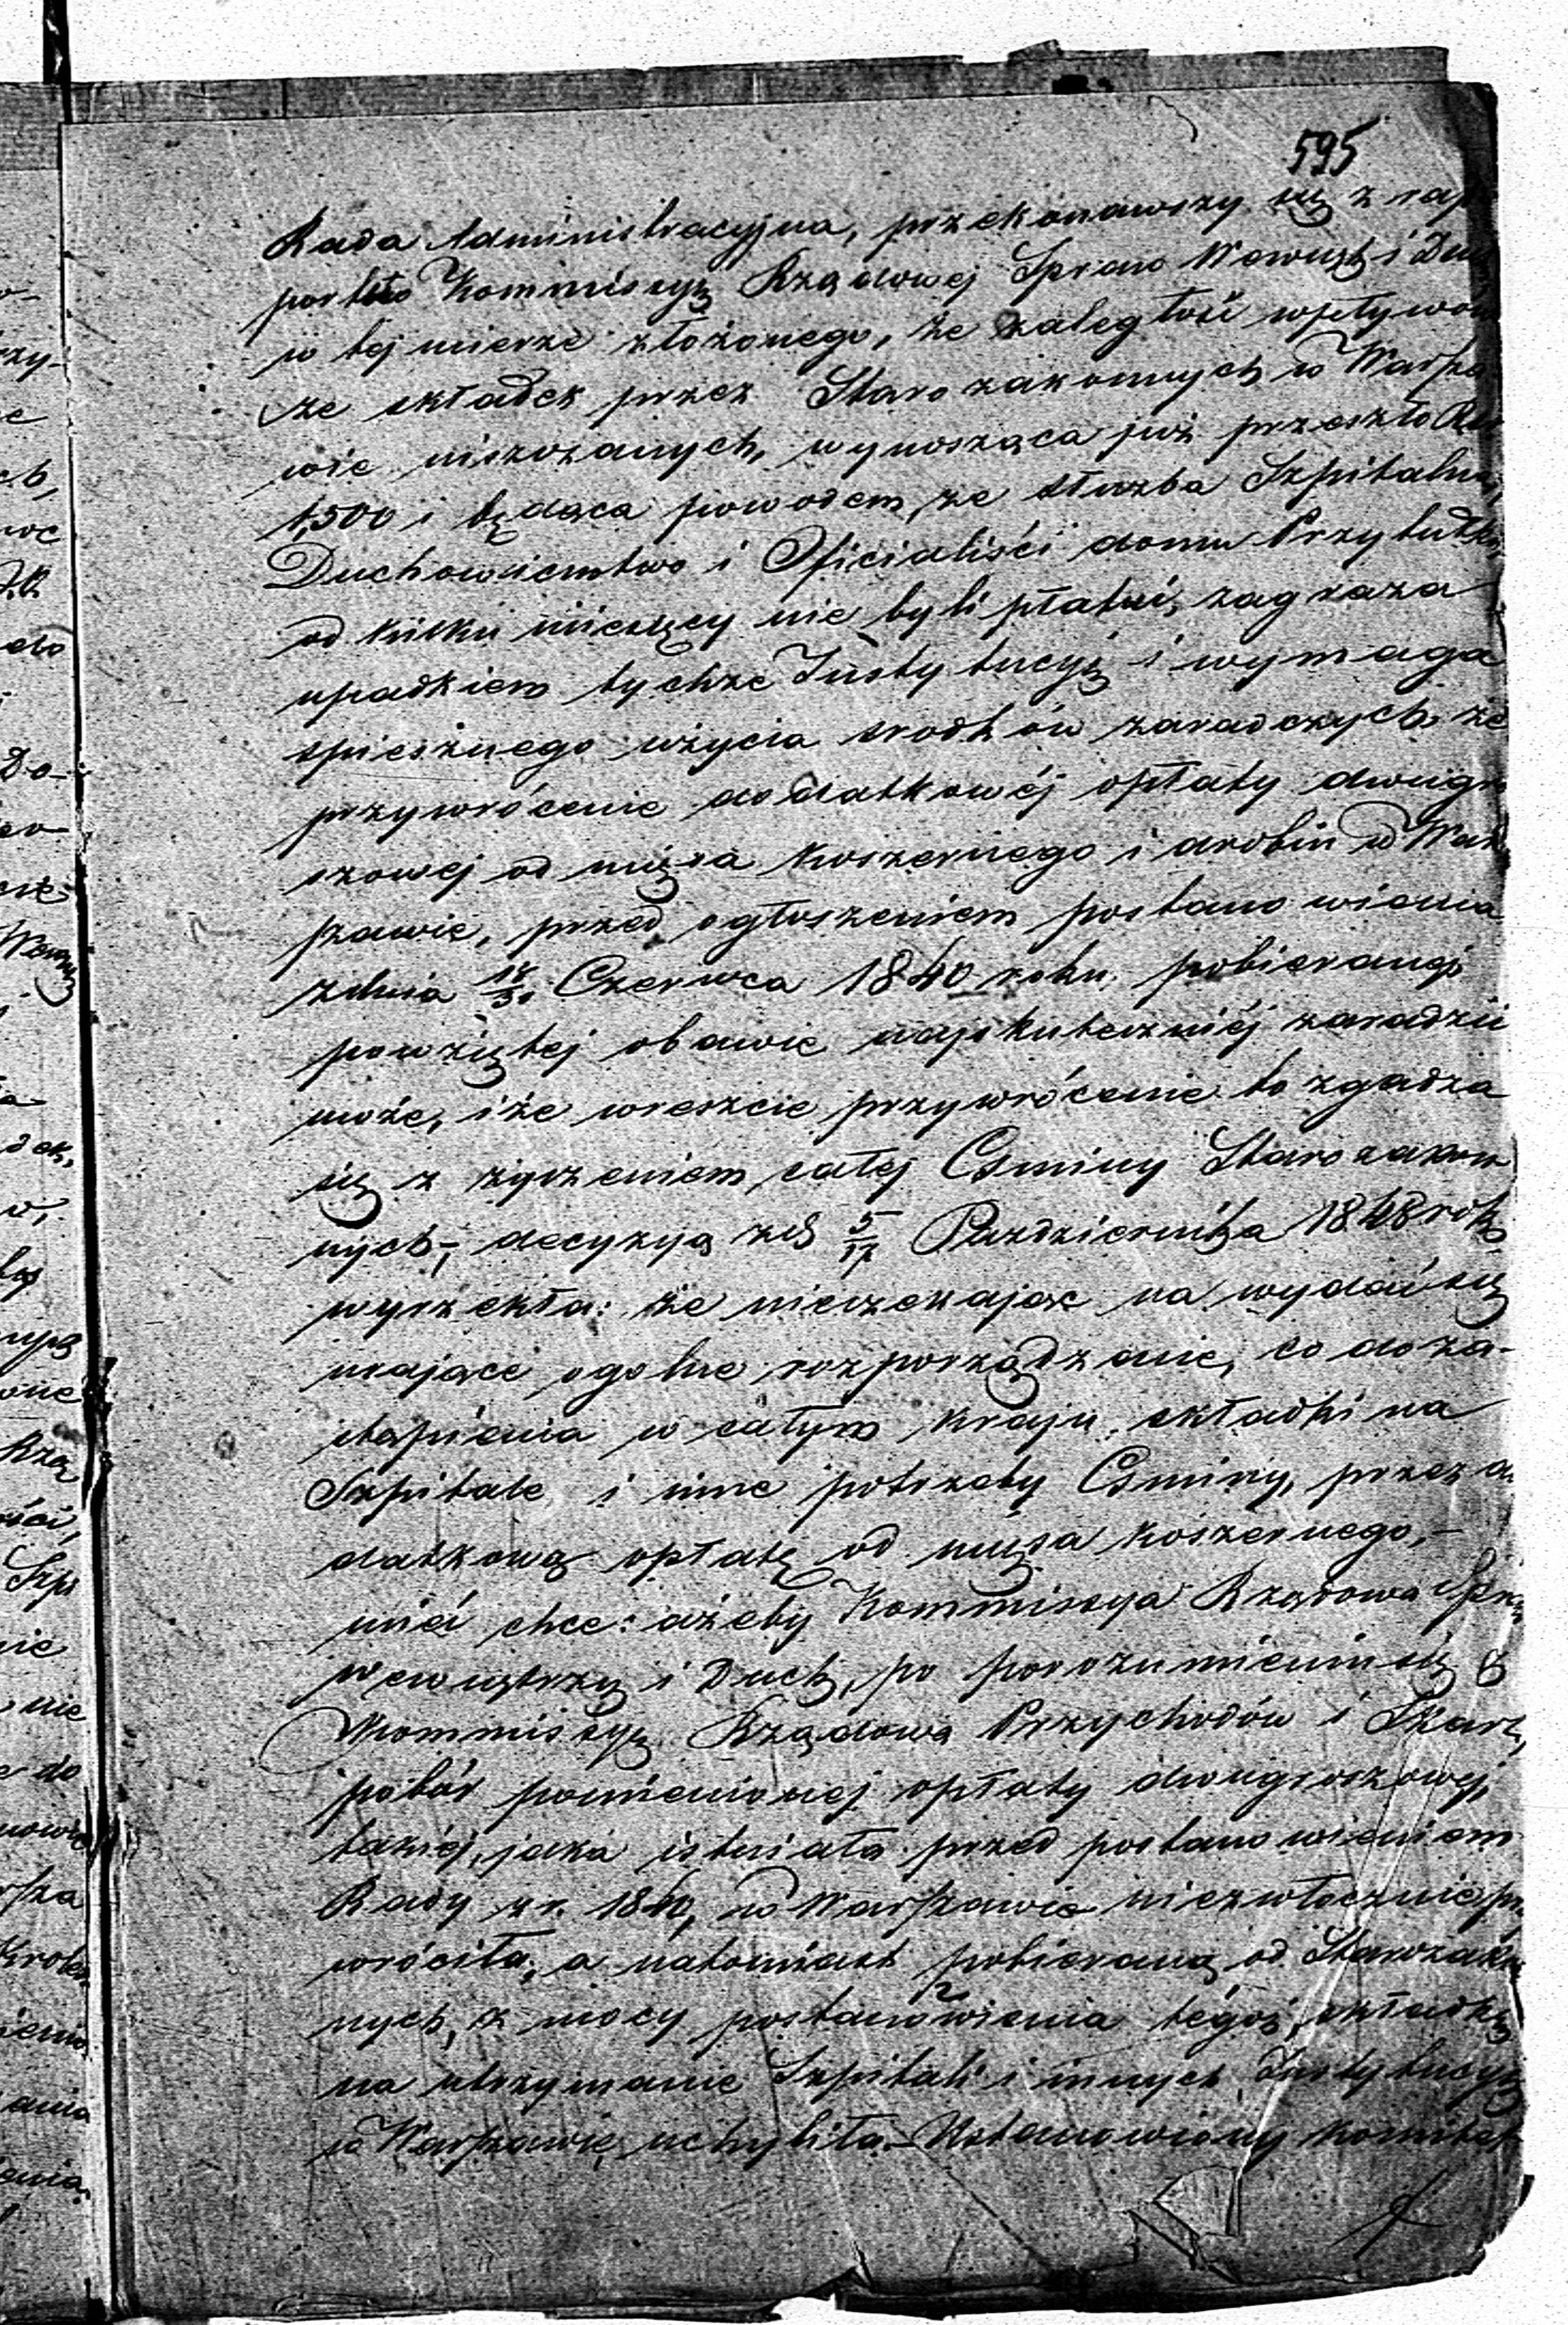 595
Rada Administracyjna, przekonawszy się z rap
portu Kommissyi Rządowej Spraw Wewnęt. i Duch
w tej mierze złożonego, że zaległość wpływów
ze składek przez Starozakonnych w Warsza
wie uiszczanych, wynosząca już przeszło Rsr
1,500 i będąca powodem, że służba Szpitalna,
Duchowieństwo i Oficialiści domu Przytułku
od kilku miesięcy nie byli płatni, zagraża
upadkiem tychże Instytucyi i wymaga
spiesznego użycia srodków zaradczych że
przywrócenie dodatkowéj opłaty dwugro
szowej od mięsa koszernego i drobiu w War
szawie, przed ogłoszeniem postanowienia
z dnia 18/30 Czerwca 1840 roku pobieranej
powziętej obawie najskuteczniéj zaradzić
może, i że wreszcie przywrócenie to zgadza
się z życzeniem całej Gminy Starozakon
nych; decyzyą z d 5/17 Października 1848 roku
wyrzekła: że nieczekając na wydać się
mające ogolne rozporządzenie, co do za-
stąpienia w całym kraju składki na
Szpitale i inne potrzeby Gminy, przez do
datkową opłatę od mięsa koszernego,-
mieć chce: ażeby Kommissya Rządowa Spraw
Wewnętrzy i Duch, po porozumieniu się z
Kommissyą Rządową Przychodów i Skarb,
pobór pomienionej opłaty dwugroszowej,
takiéj, jaka istniała przed postanowieniem
Rady z r. 1840, w Warszawie niezwłocznie przy
wróciła, a natomiast pobieraną od Starozakon
nych, z mocy postanowienia tegoż, składkę
na utrzymanie Szpitali i innych Instytucyi
w Warszawie uchyliła.- Ustanowiony Komitet